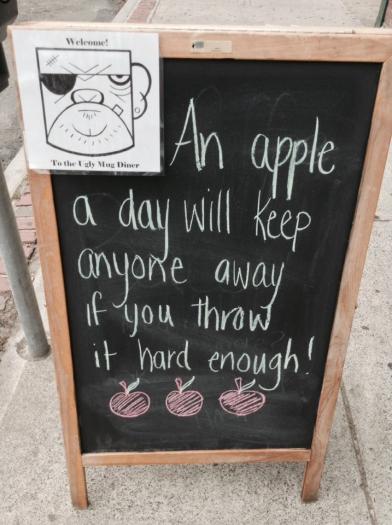 Welcome!
To the Ugly Mug Diner
An apple
a day will keep
anyone away
if you throw
it hard enough!